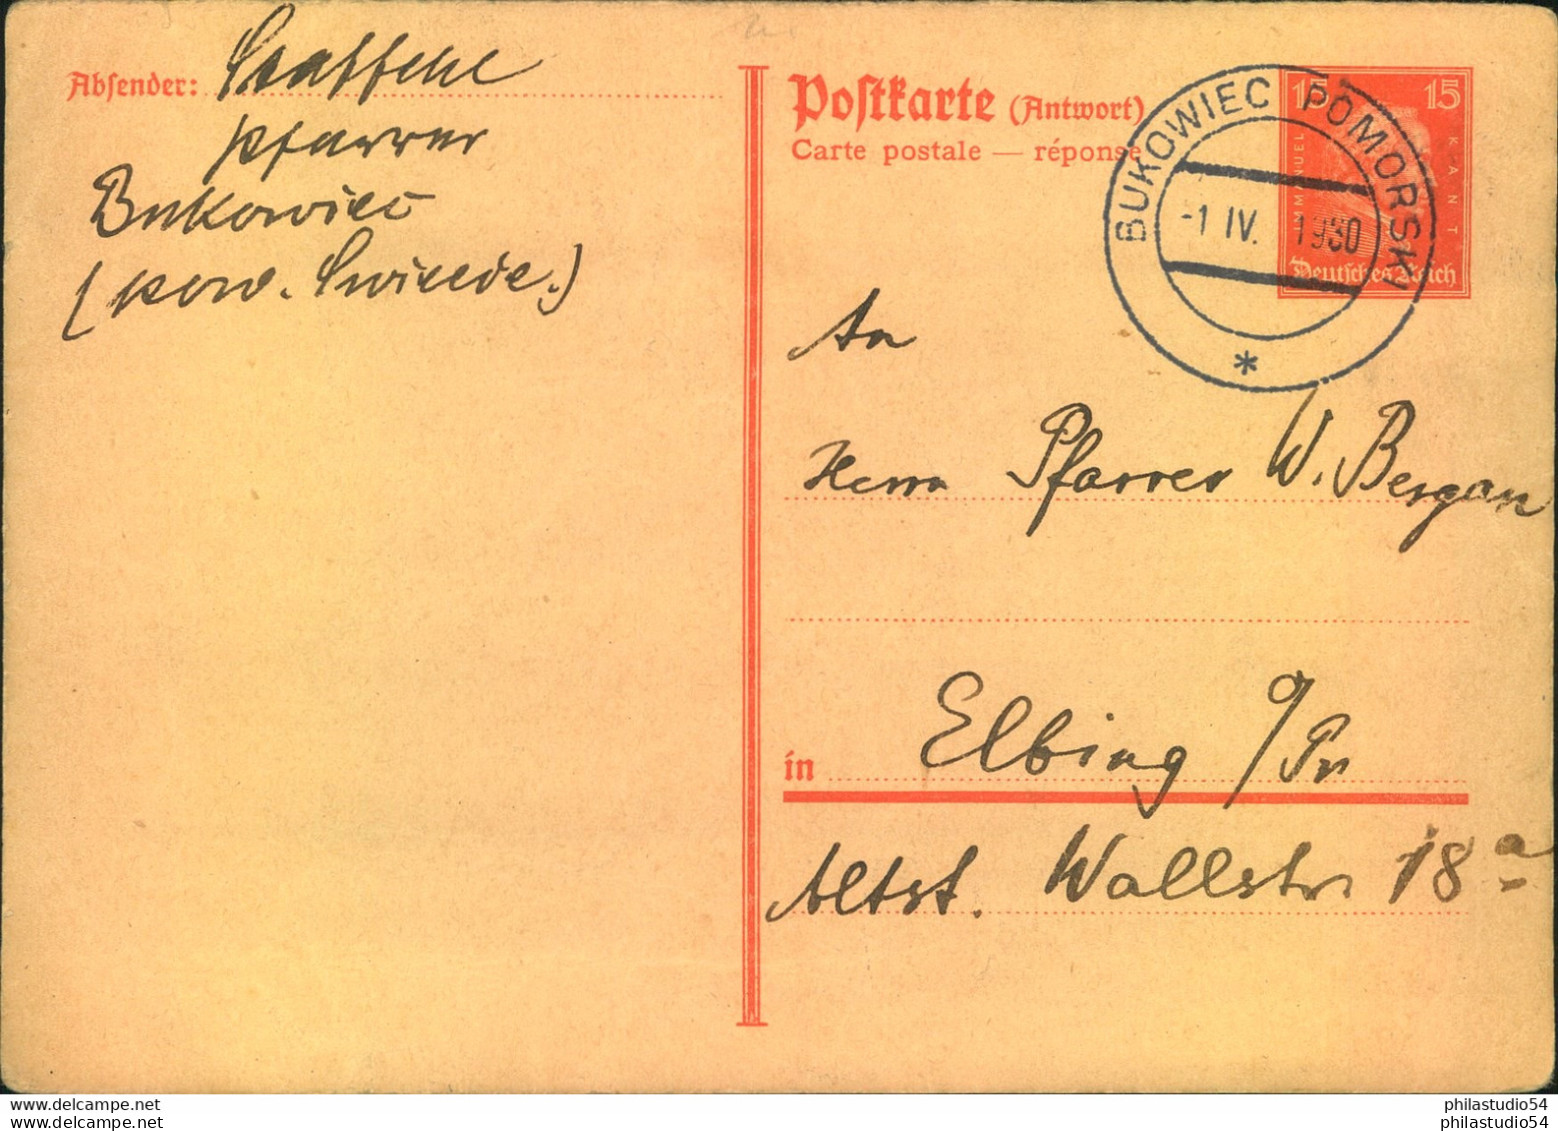 Absender: Staffehl
Pfarrer
Bukowiec
(pow. Swiecie.)
Postkarte (Antwort)
Carte postale — réponse
15 15
IMMANUEL KANT
Deutsches Reich
BUKOWIEC POMORSKI
-1 IV. 1930
*
An
Herrn Pfarrer W. Bergan
in Elbing O/Pr
Altst. Wallstr. 18 a
philastudio54
philastudio54
philastudio54
philastudio54